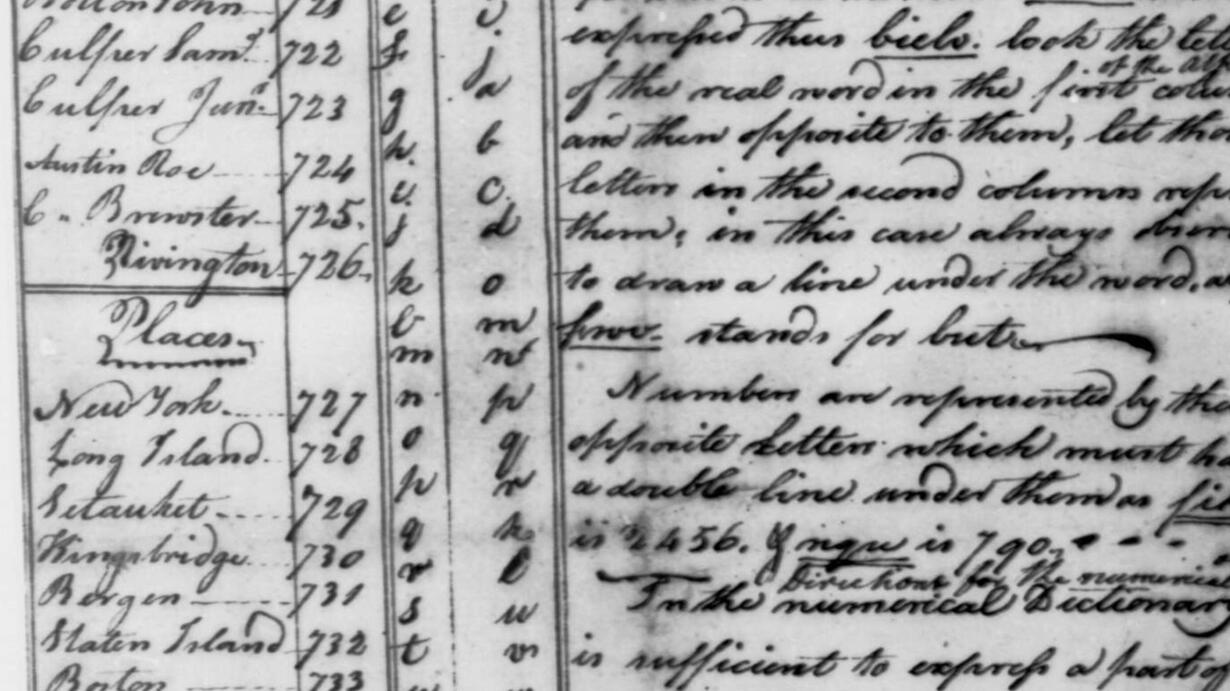 Bolton John 721
Culper Sam.l 722
Culper Jun.r 723
Austin Roe 724
C. Brewster 725.
Rivington 726.
Places
New York 727
Long Island 728
Setauket 729
Kingsbridge 730
Bergen 731
Staten Island 732
Boston 733
e i
f j
g a
h b
i c
j d
k o
l m
m n
n p
o q
p r
q k
r l
s u
t v
expressed thus bielv. look the let
of the Alp
of the real word in the first colu
and then opposite to them, let tho
letters in the second column rep
them; in this case always
to draw a line under the word, a
fwv. stands for but
Numbers are represented by the
opposite letters which must ha
a double line under them as fi
is 2456. & nqu is 790.
Directions for the numeric
In the numerical Dictionary
is sufficient to express a part of